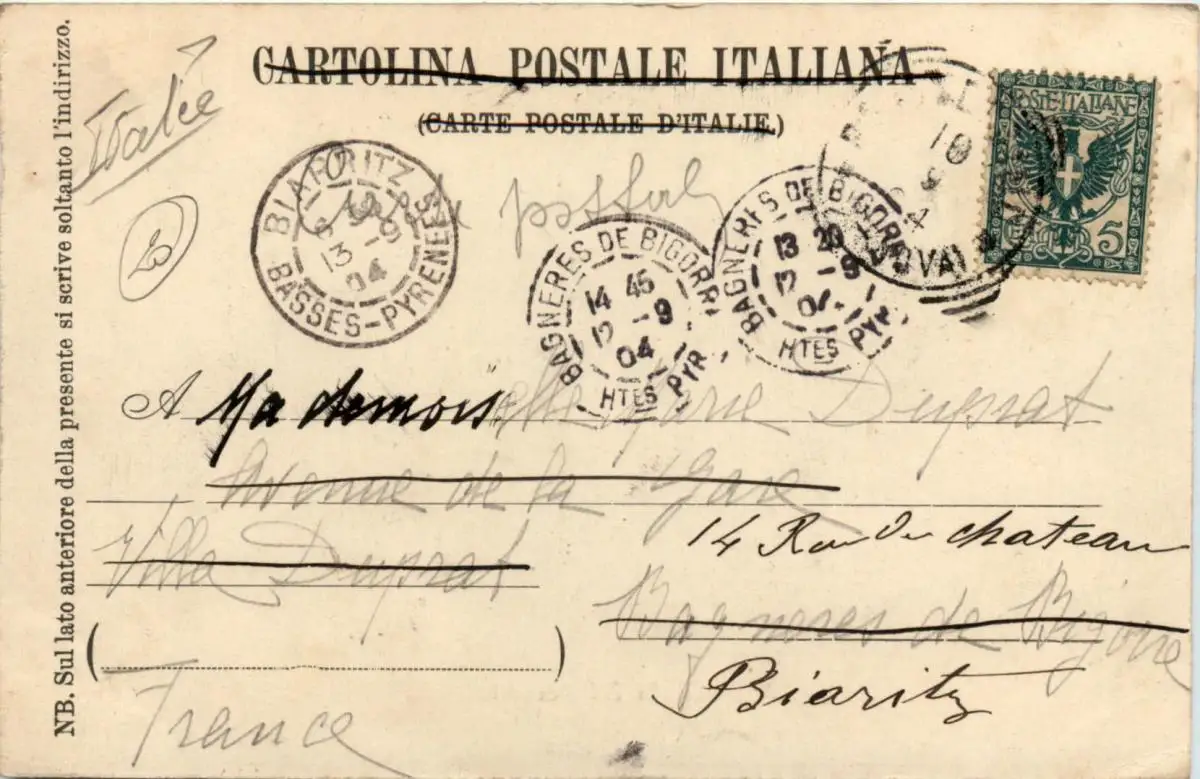 CARTOLINA POSTALE ITALIANA
(CARTE POSTALE D'ITALIE.)
NB. Sul lato anteriore della presente si scrive soltanto l'indirizzo.
Italie
20
postale
POSTE ITALIANE
5
10
9
4
BIARRITZ
13 -9
04
BASSES-PYRENEES
BAGNERES DE BIGORRE
14 45
12 -9
04
HTES PYR.
BAGNERES DE BIGORRE
13 20
12 -9
04
HTES PYR.
A Mademoiselle Marie Duprat
Avenue de la Gare
14 Rue du chateau
Villa Duprat
Bagneres de Bigorre
Biaritz
France